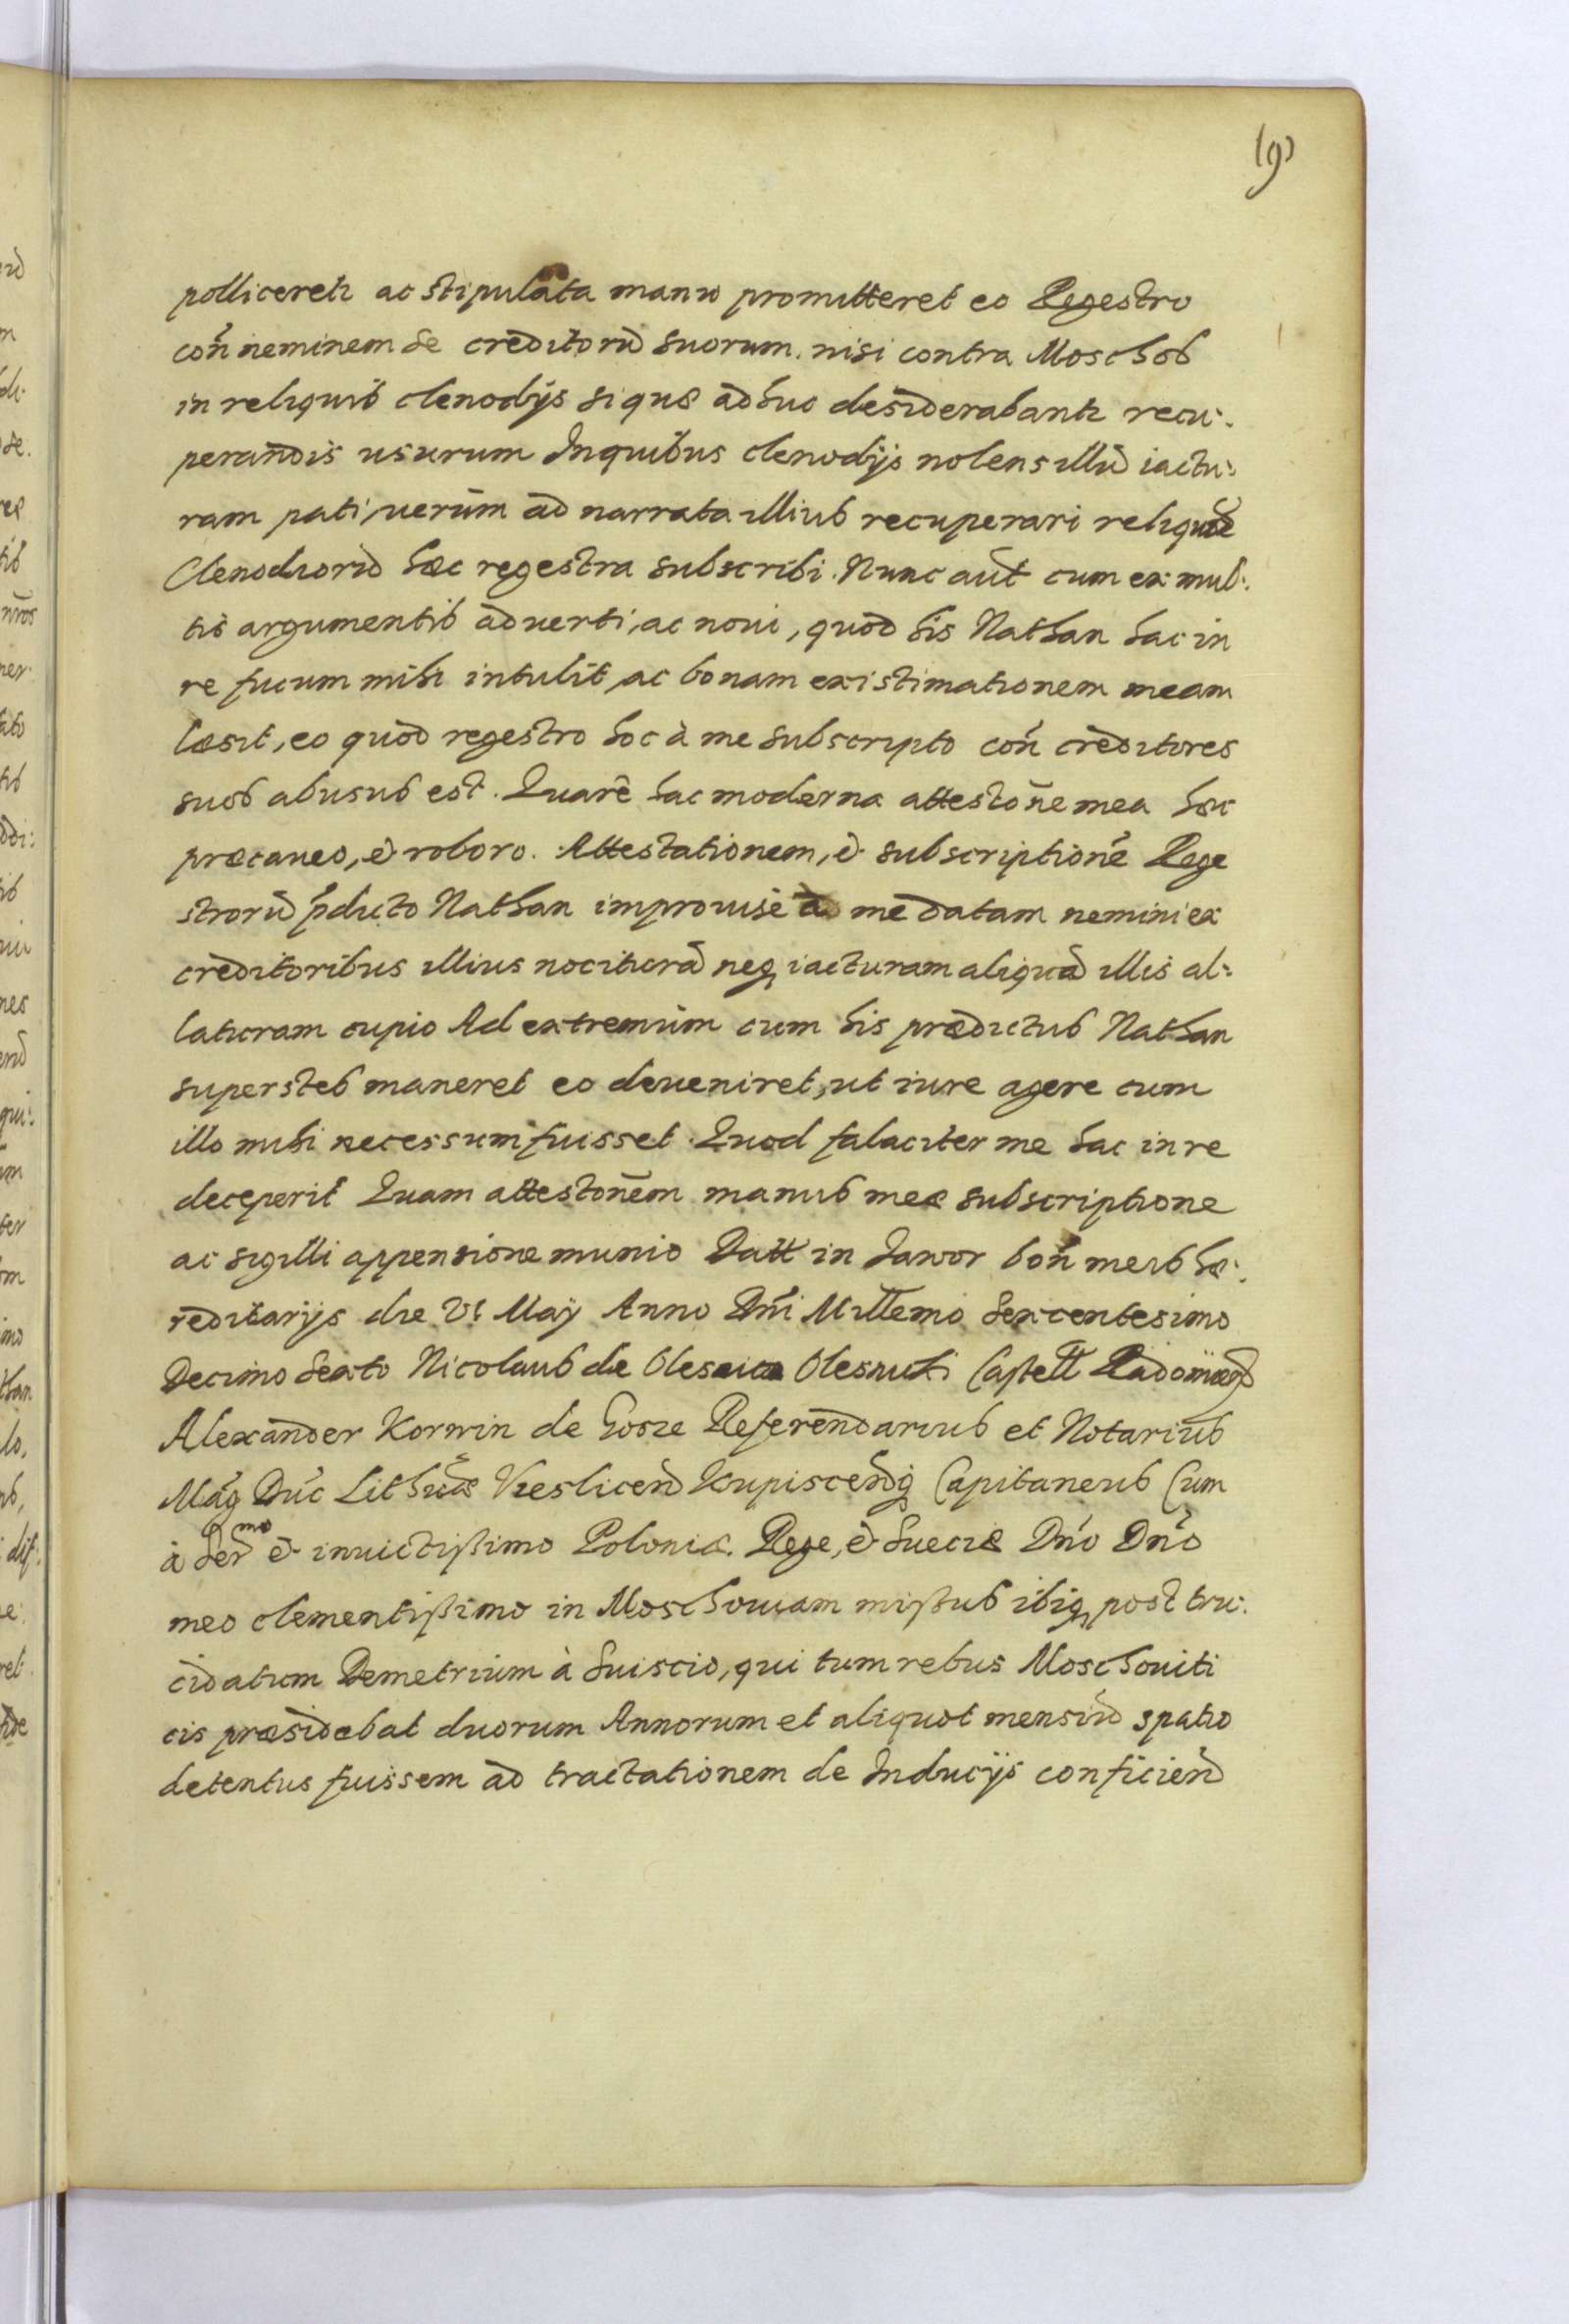 19
pollicereti ac stipulata manu promitteret eo Regestro
coñ neminem de creditorũ suorum nisi contra Moschos
in reliquis clenodijs si quæ adhuc desiderabanti recu:
perandis usurum Inquibus clenodijs nolens illũ iactu:
ram pati, uerùm ad narrata illius recuperari reliquiæ
Clenodiorũ hæc regestra subscribi. Nunc aut̃ cum ex mul:
tis argumentis aduerti, ac noui, quod his Nathan hac in
re fucum mihi intulit, ac bonam existimationem meam
læsit, eo quod regestro hoc à me subscripto coñ creditores
suos abusus est. Quarè hac moderna attestoñe mea hoc
præcaueo, & roboro. Attestationem, & subscriptionẽ Rege
strorũ p̃dicto Nathan improuisè à me datam nemini ex
creditoribus illius nocituram neq̨ iacturam aliquã illis al:
laturam cupio Ad extremùm cum his prædictus Nathan
superstes maneret eo deueniret, ut iure agere cum
illo mihi necessum fuisset. Quod falaciter me hac in re
deceperit Quam attestoñem manus meæ subscriptione
ac sigilli appensione munio Datt in Jawor boñ meis hæ:
reditarijs die VI Maÿ Anno Dñi Millemo Sexcentesimo
Decimo Sexto Nicolaus de Olesnica Olesnicki Castell Radomień
Alexander Korwin de Gosze Referendarius et Notarius
Mag Duc̃ Lithuæ Vieslicen Kupiscenq̨ Capitaneus Cum
à Ser^mo & inuictissimo Poloniæ Rege, & Sueciæ Dño Dño
meo clementissimo in Moschouiam missus ibiq̨ post tru:
cidatum Demetrium à Suiscio, qui tum rebus Moschouiti
cis præsidebat duorum Annorum et aliquot mensiũ spatio
detentus fuissem ad tractationem de Inducijs conficien̄